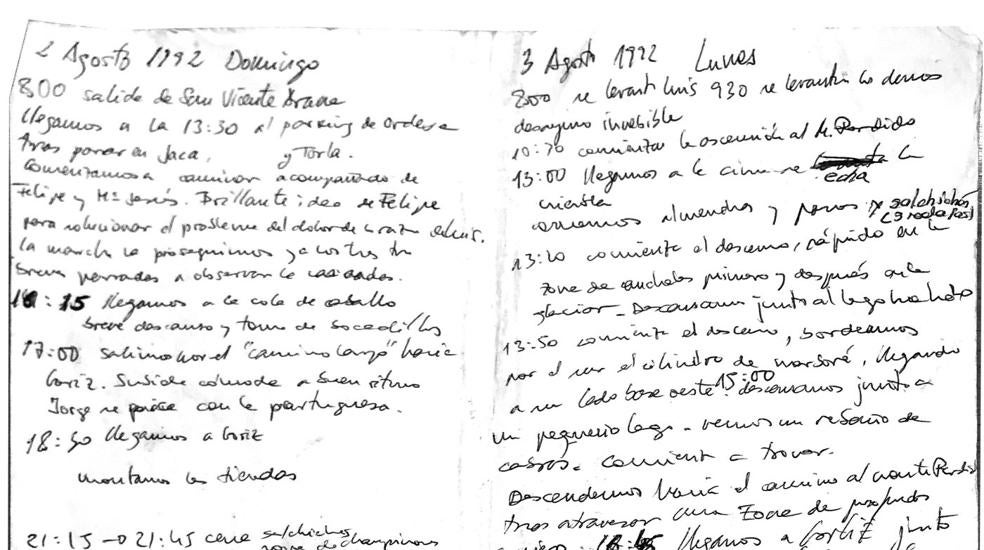 2 Agosto 1992 Domingo
800 salida de San Vicente
llegamos a la 13:30 al parking de Ordesa
tras parar en Jaca, y Torla.
Comenzamos a caminar acompañado de
Felipe y Mª Jesús. Brillante idea de Felipe
para solucionar el problema del dolor de
la marcha la proseguimos ya los tres
breves paradas a observar las cascadas.
16:15 llegamos a la cola de caballo
breve descanso y toma de bocadillos
17:00 salimos por el "camino largo" hacia
Goriz. Subida cómoda a buen ritmo
Jorge se pica con la portuguesa.
18:50 llegamos a Goriz
montamos las tiendas
21:15 → 21:45 cena salchichas
sopa de champiñones
3 Agosto 1992 Lunes
800 se levanta Luis 930 se levantan los demas
desayuno
10:30 comienza la ascensión al M. Perdido
13:00 llegamos a la cima se echa la
niebla
comemos almendras y pasas y salchichón
13:20 comienza el descenso, rápido en la
zona de primero y después en el
glaciar - Descansamos junto al lago helado
13:50 comienza el descenso, bordeamos
por el sur el cilindro de marboré, llegando
a su lado base oeste 15:00 descansamos junto a
un pequeño lago - vemos un rebaño de
cabras. Comienza a tronar.
Descendemos hacia el camino al monte Perdido
tras atravesar una zona de profundos
llegamos a Goriz junto